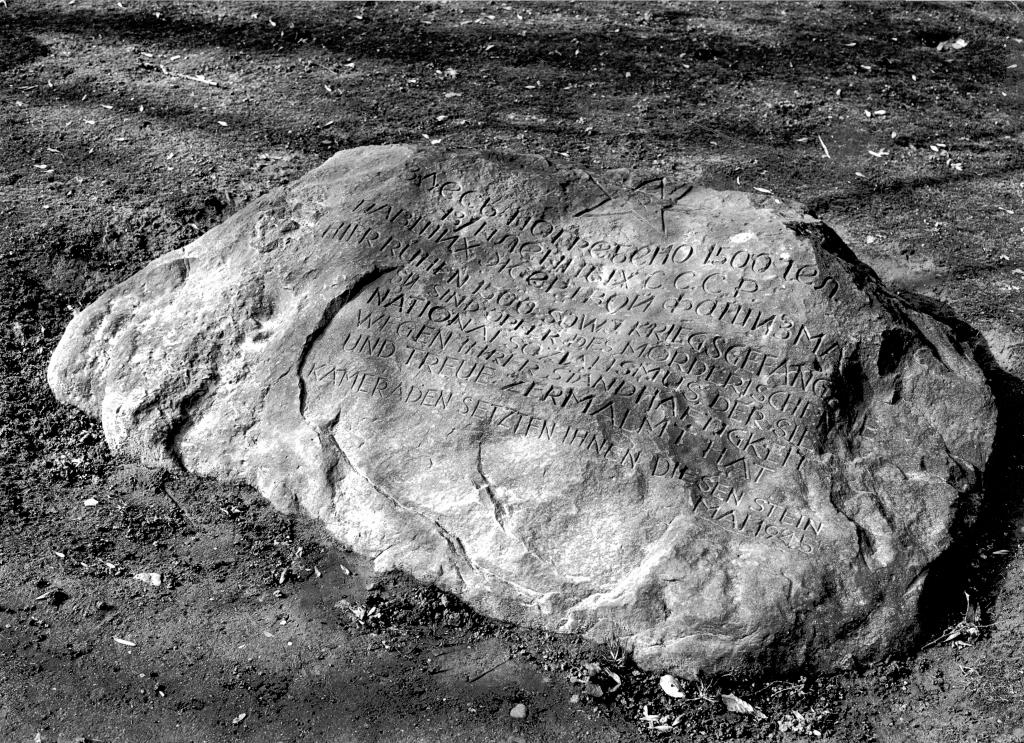 ЗДЕСЬ ПОГРЕБЕНО 1500 ТЕЛ
ПЛЕННЫХ С.С.С.Р.
ПАВШИХ ЖЕРТВОЙ ФАШИЗМА
HIER RUHEN 1500 SOWJ. KRIEGSGEFANG
SIE SIND OPFER DES MÖRDERISCHEN
NATIONALSOZIALISMUS DER SIE
WEGEN IHRER STANDHAFTIGKEIT
UND TREUE ZERMALMT HAT
KAMERADEN SETZTEN IHNEN DIESEN STEIN
MAI 1945